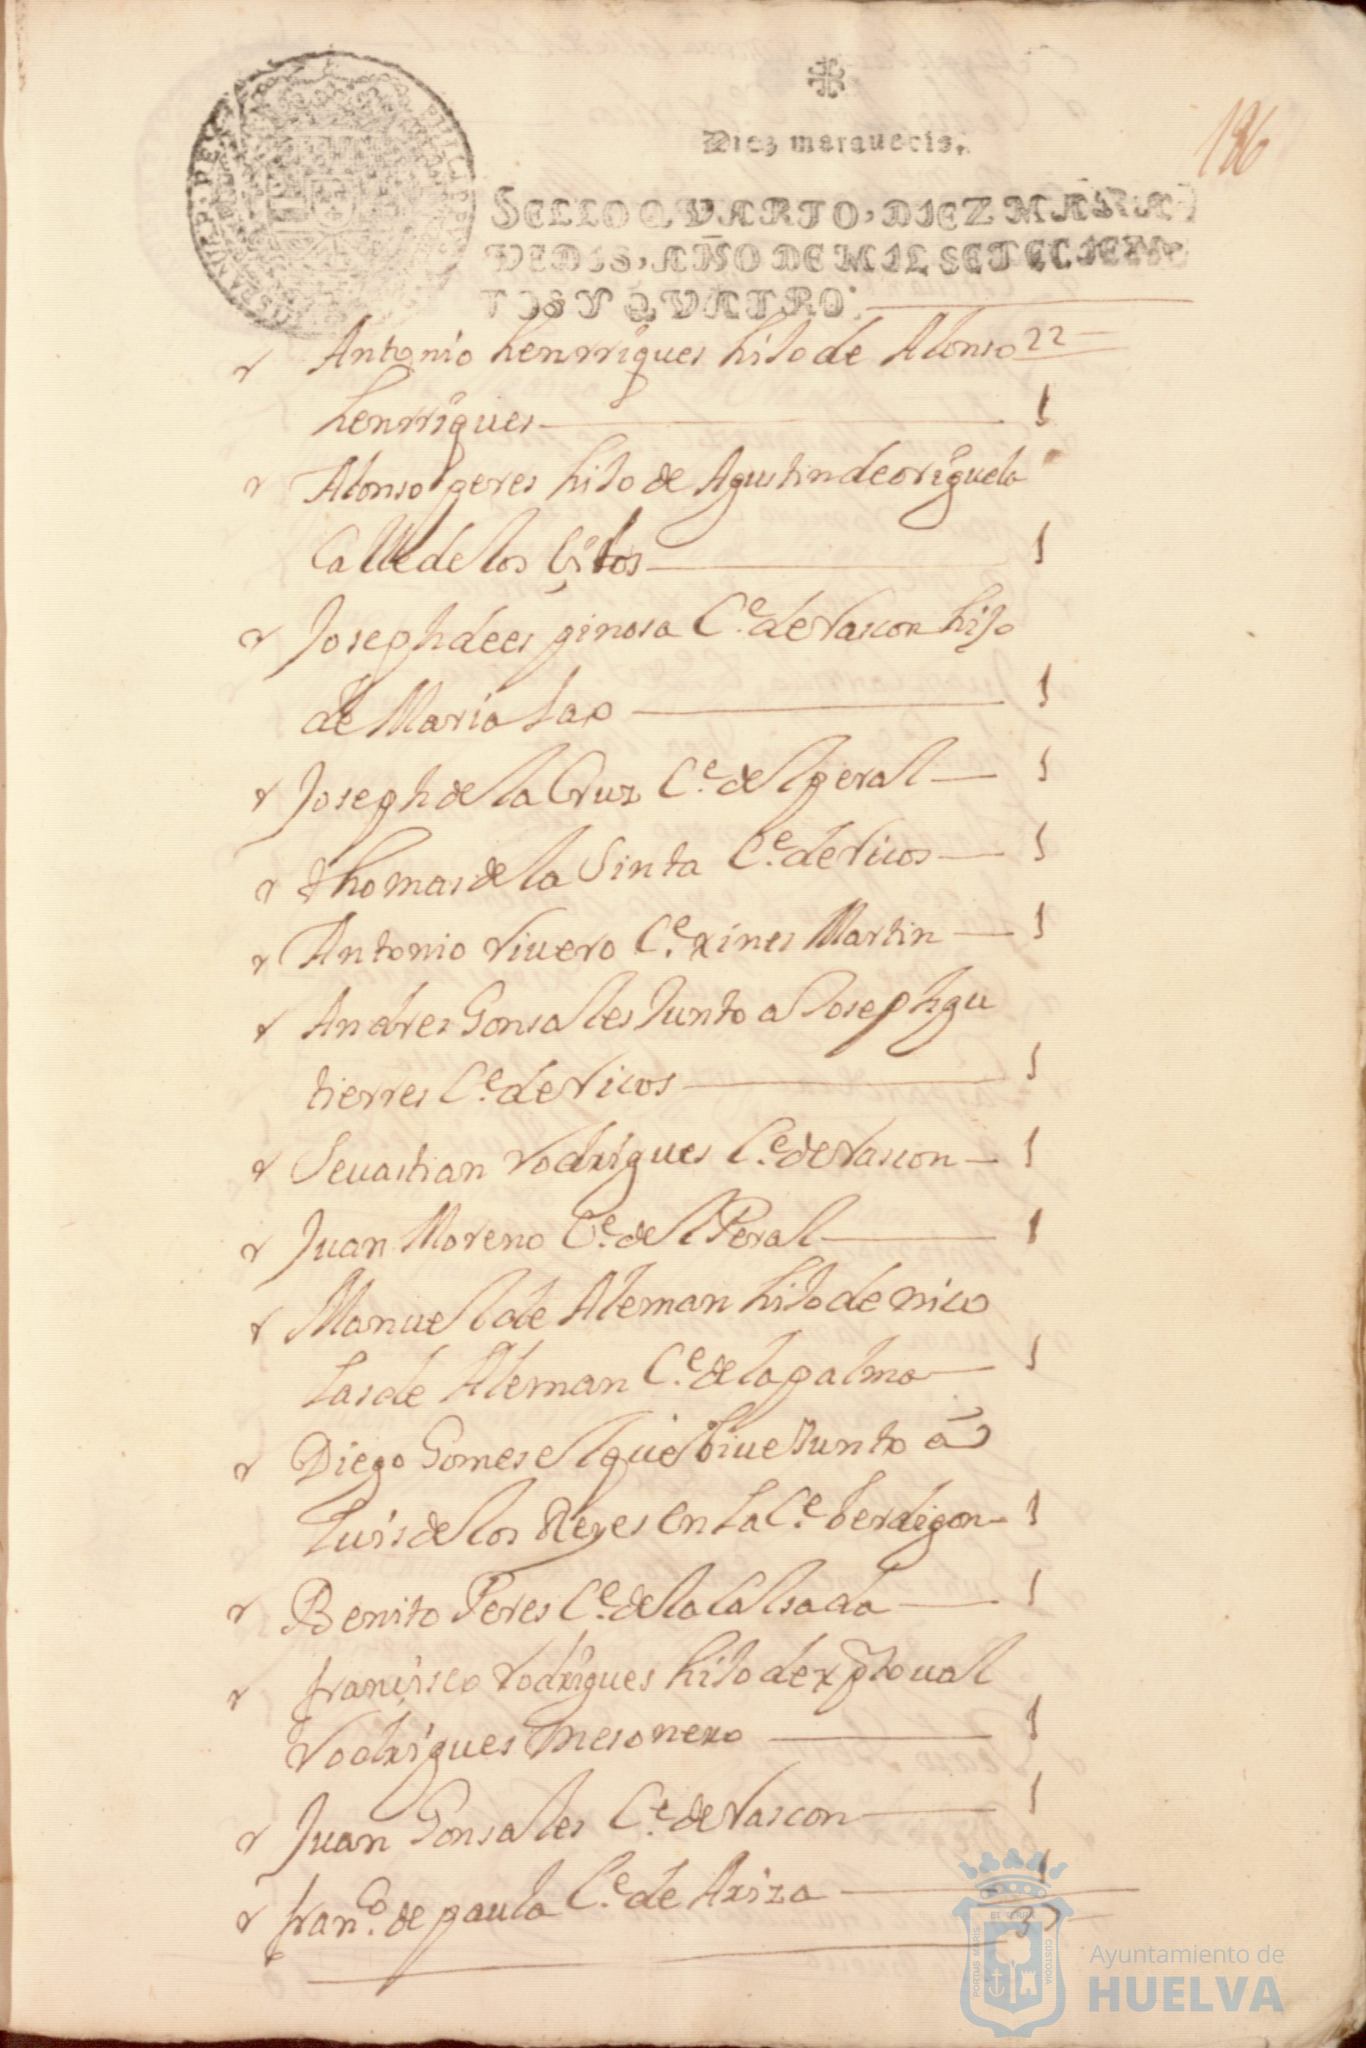 186
Diez marauedis.
SELLO QVARTO, DIEZ MARA
VEDIS, AÑO DE MIL SETECIEN
TOS Y QVATRO.
Antonio henrriques hiJo de Alonso 22
henrriques 1
Alonso peres hiJo de Agustin de origuela
Calle de los 1
Joseph de espinosa C.e de Vascon hiJo
de Maria Lao 1
Joseph de la Cruz C.e del peral 1
thomas de la Sinta C.e de Vicos 1
Antonio Viuero C.e xines Martin 1
Andres Gonsales Junto a Joseph gu
tierres C.e de Vicos 1
Seuastian Rodrigues C.e de Vascon 1
Juan Moreno C.e del Peral 1
Manuel de Aleman hiJo de nico
las de Aleman C.e de la palma 1
Diego Gomes el que biue Junto a
Luis de los Reyes en La C.e berdigon 1
Benito Peres C.e de la Calsada 1
francisco Rodrigues hiJo de xptoual
Rodrigues mesonero 1
Juan Gonsales C.e de Vascon 1
fran.co de paula C.e de Ariza 1
37
PORTUS MARIS
ET TERRÆ
CUSTODIA
Ayuntamiento de
HUELVA